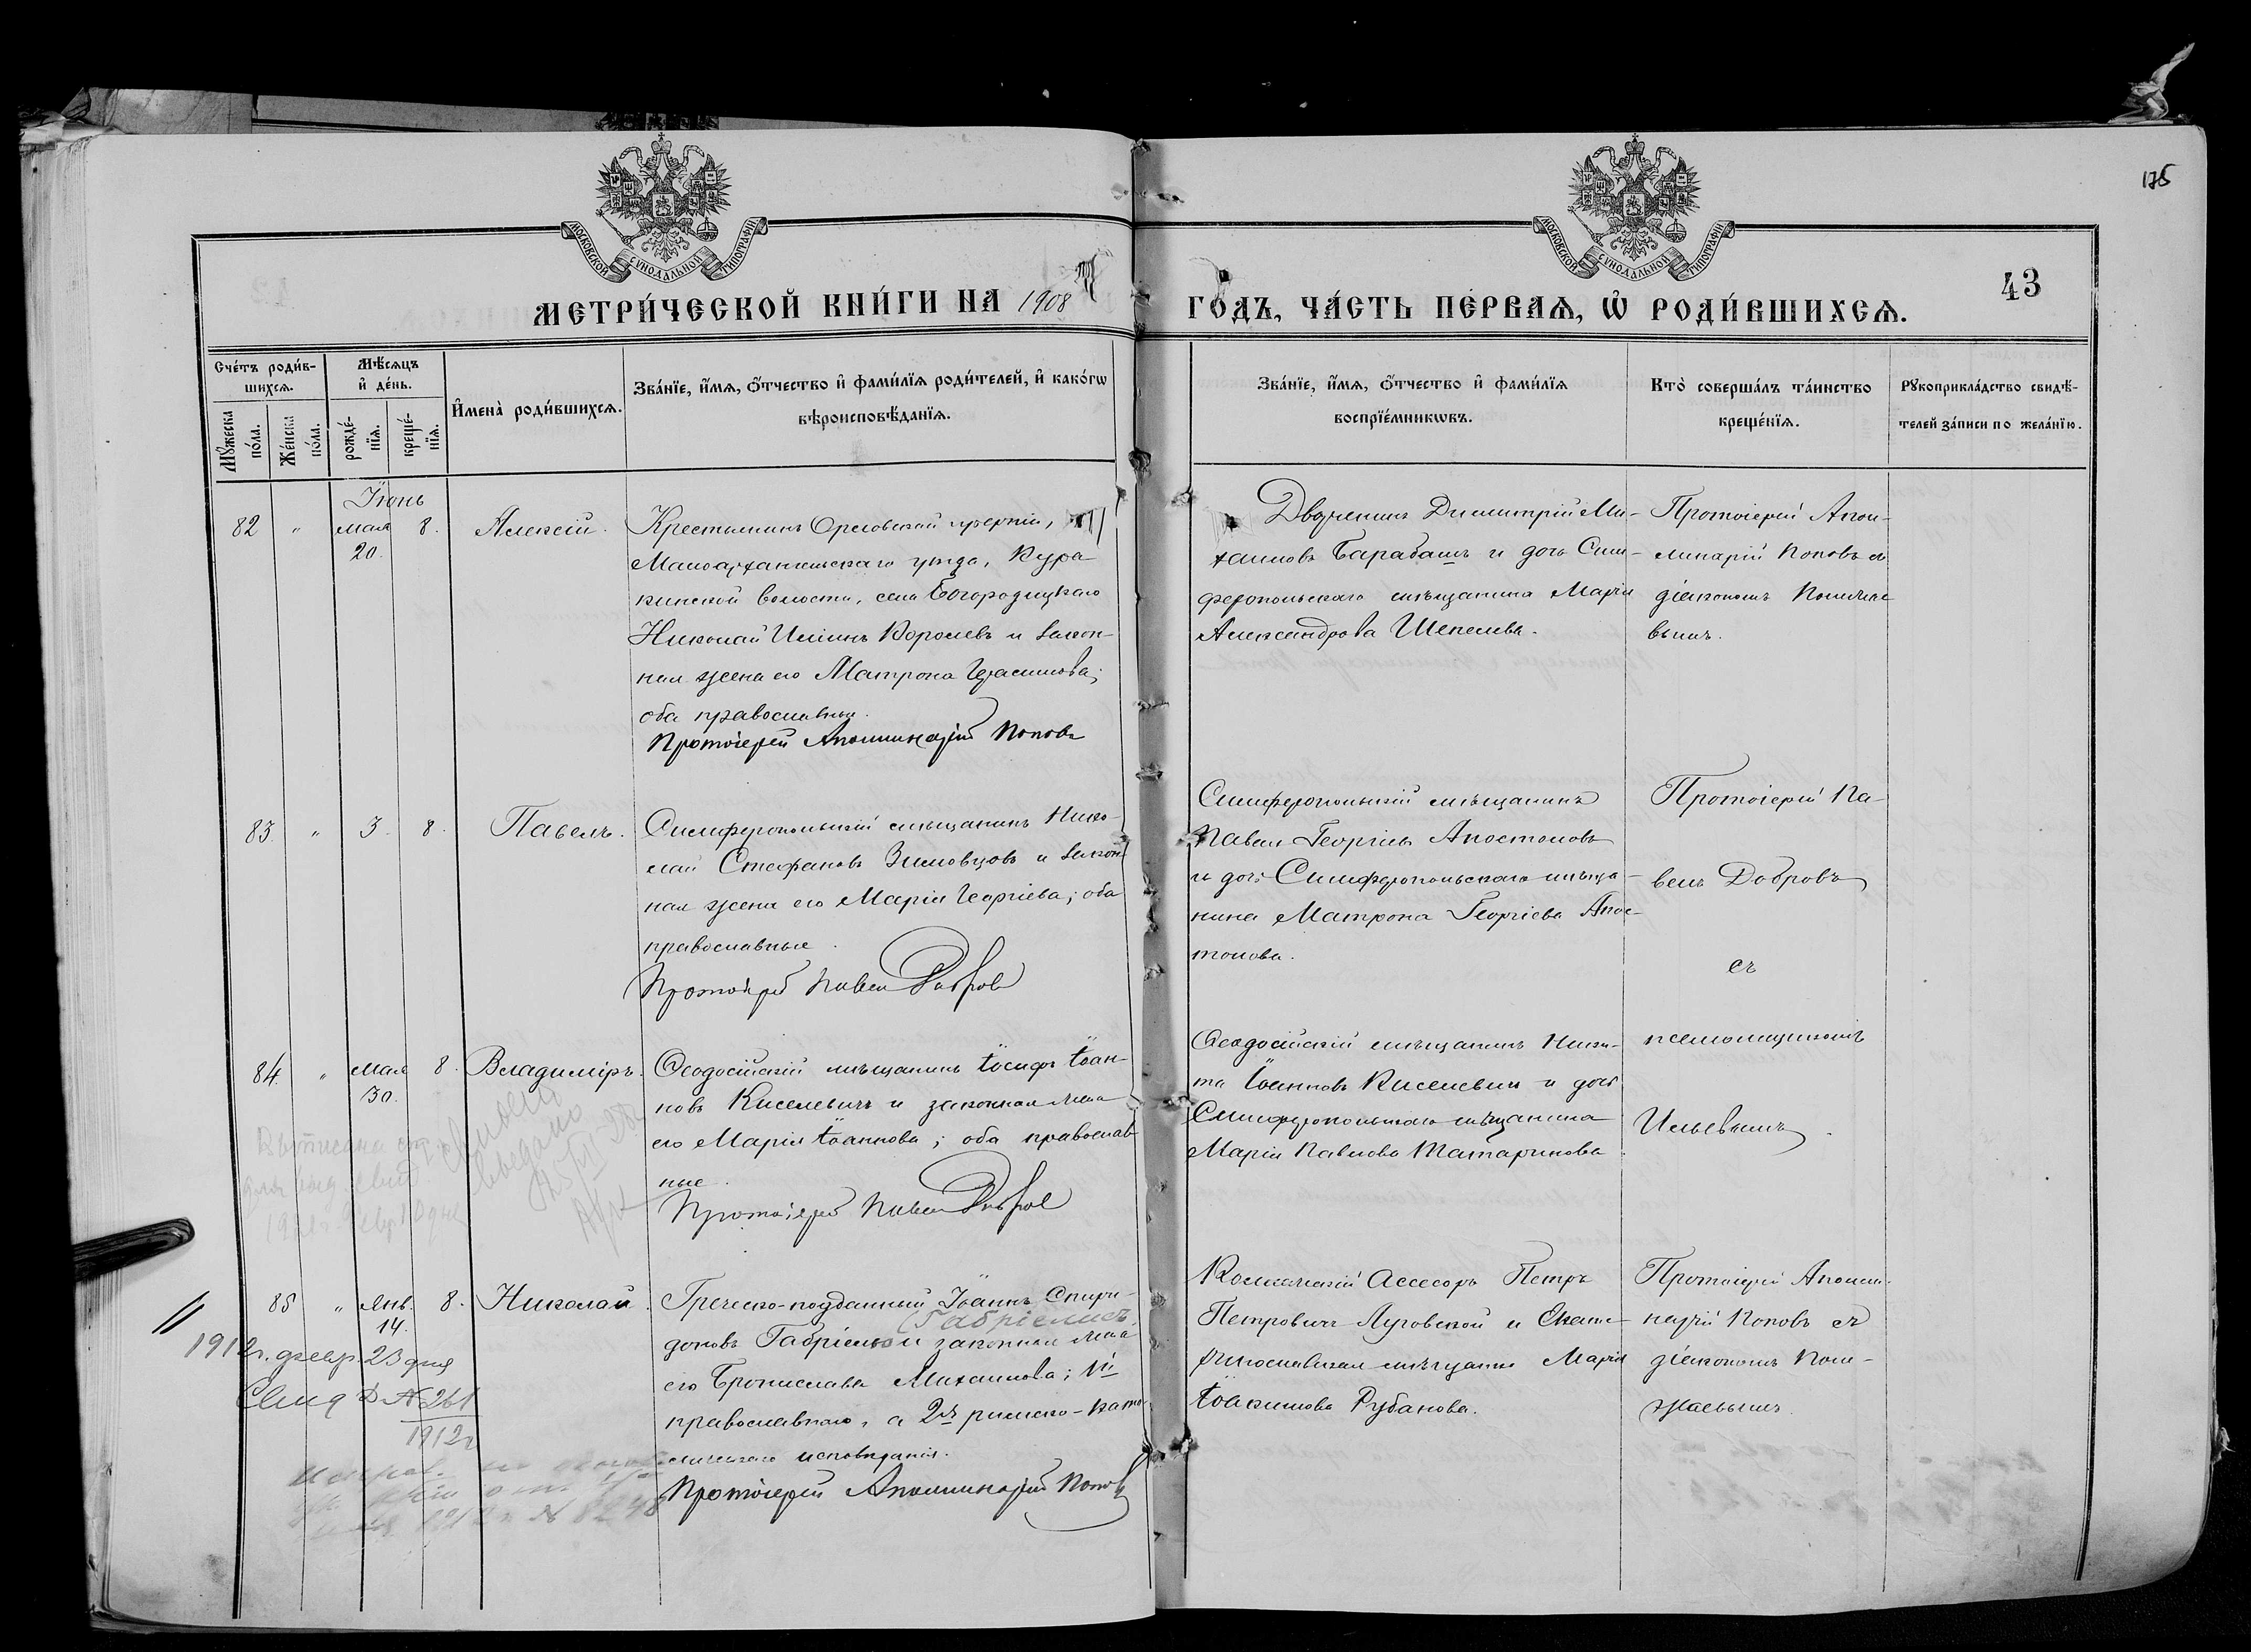 175
МОСКОВСКОЙ СѴНОДАЛЬНОЙ ТИПОГРАФІИ
МОСКОВСКОЙ СѴНОДАЛЬНОЙ ТИПОГРАФІИ
43
МЕТРИ́ЧЕСКОЙ КНИ́ГИ НА 1908
ГО́ДЪ, ЧА́СТЬ ПЕ́РВАѦ, Ѡ҆ РОДИ́ВШИХСѦ.
Сче́тъ роди́в-
шихсѧ.
Мꙋ́жеска по́ла.
Же́нска по́ла.
Мѣ́сѧцъ и҆ де́нь.
рожде́-нїѧ.
креще́-нїѧ.
И҆мена̀ роди́вшихсѧ.
Зва́нїе, и҆́мѧ, ѻ҆́тчество и҆ фами́лїѧ роди́телей, и҆ како́гѡ
вѣроисповѣ́данїѧ.
Зва́нїе, и҆́мѧ, ѻ҆́тчество и҆ фами́лїѧ
воспрїе́мникѡвъ.
Кто̀ соверша́лъ та́инство
креще́нїѧ.
Рꙋкоприкла́дство свидѣ́-
телей за́писи по жела́нїю.
Іюнь
82 " мая 20. 8. Алексій.
Крестьянинъ Орловской губерніи,
Малоархангельскаго уѣзда, Кура
кинской волости, села Богородицкаго
Николай Ильинъ Королевъ и закон-
ная жена его Матрона Герасимова;
оба православные.
Протоіерей Аполлинарій Поповъ
Дворянинъ Димитрій Ми-
хаиловъ Барабашъ и дочь Сим-
феропольскаго мѣщанина Марія
Александрова Шепелева.
Протоіерей Апол-
линарій Поповъ съ
діакономъ
83. " 3. 8. Павелъ.
Симферопольскій мѣщанинъ Нико-
лай Стефановъ Зимовцовъ и закон
ная жена его Марія Георгіева; оба
православные.
Протоіерей Павелъ Добровъ
Симферопольскій мѣщанинъ
Павелъ Георгіевъ Апостоловъ
и дочь Симферопольскаго мѣща-
нина Матрона Георгіева Апос-
толова.
Протоіерей Па-
велъ Добровъ
съ
псаломщикомъ
Ильевымъ.
84. " мая 30. 8. Владиміръ.
Ѳеодосійскій мѣщанинъ Іосифъ Іоан-
новъ Киселевичъ и законная жена
его Марія Іоаннова; оба православ-
ные.
Протоіерей Павелъ Добровъ
Ѳеодосійскій мѣщанинъ Ники-
та Іоанновъ Киселевичъ и дочь
Симферопольскаго мѣщанина
Марія Павлова Татаринова.
85 " Янв. 14. 8. Николай.
Греческо-подданный Іоаннъ Спири-
(Габріелисъ)
доновъ Габріельи законная жена
его Брониславъ Михаилова; 1й
православнаго, а 2я римско-като
лическаго исповѣданія.
Протоіерей Аполлинарій Поповъ
Коллежскій Ассесоръ Петръ
Петровичъ Луговской и Екате-
ринославская мѣщанка Марія
Іоакимова Рубанова.
Протоіерей Аполли-
нарій Поповъ съ
діакономъ
1912г. февр. 23 дня
Свид № 261
1912г
1912 г. № 8248